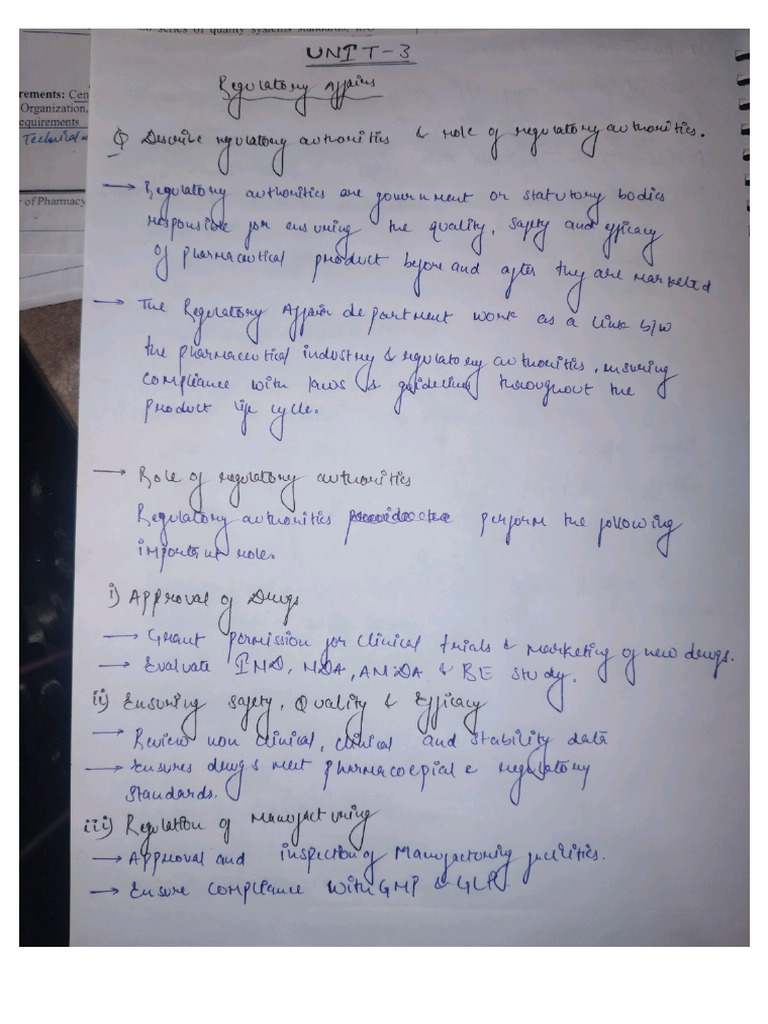 and series of quality systems standards, ISO
UNIT-3
Regulatory Affairs
rements: Cen
Organization,
equirements
Technical
r of Pharmacy
Q Describe regulatory authorities & role of regulatory authorities.
→ Regulatory authorities are government or statutory bodies
responsible for ensuring the quality, safety and efficacy
of pharmaceutical product before and after they are marketed
→ The Regulatory Affair department work as a link b/w
the pharmaceutical industry & regulatory authorities, ensuring
compliance with laws & guideline throughout the
product life cycle.
→ Role of regulatory authorities
Regulatory authorities perform the following
important role.
i) Approval of Drugs
→ Grant permission for clinical trials & marketing of new drugs.
→ Evaluate IND, NDA, ANDA & BE study.
ii) Ensuring safety, Quality & Efficacy
→ Review non clinical, clinical and stability data
→ Ensures drugs meet pharmacoepial & regulatory
standards.
iii) Regulation of Manufacturing
→ Approval and inspection of Manufacturing facilities.
→ Ensure compliance with GMP & GLP.